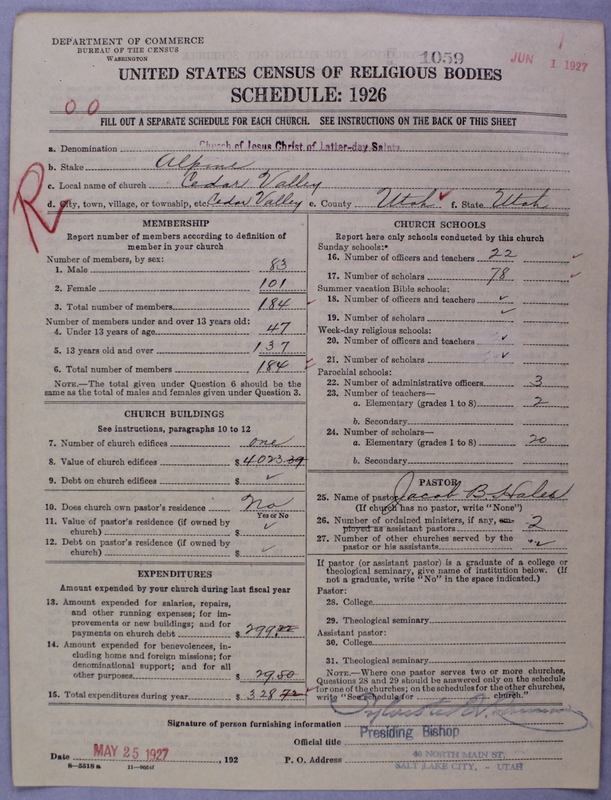 DEPARTMENT OF COMMERCE
BUREAU OF THE CENSUS
WASHINGTON
1059
JUN 1 1927
UNITED STATES CENSUS OF RELIGIOUS BODIES
SCHEDULE: 1926
0 0
FILL OUT A SEPARATE SCHEDULE FOR EACH CHURCH. SEE INSTRUCTIONS ON THE BACK OF THIS SHEET
R
a. Denomination Church of Jesus Christ of Latter-day Saints
b. Stake Alpine
c. Local name of church Cedar Valley
d. City, town, village, or township, etc. Cedar Valley e. County Utah ✓ f. State Utah
MEMBERSHIP
Report number of members according to definition of
member in your church
Number of members, by sex:
1. Male 83
2. Female 101
3. Total number of members 184
Number of members under and over 13 years old:
4. Under 13 years of age 47
5. 13 years old and over 137
6. Total number of members 184
NOTE.—The total given under Question 6 should be the
same as the total of males and females given under Question 3.
CHURCH BUILDINGS
See instructions, paragraphs 10 to 12
7. Number of church edifices one
8. Value of church edifices $ 4023.39
9. Debt on church edifices $ ✓
10. Does church own pastor's residence No
Yes or No
11. Value of pastor's residence (if owned by
church) $ ✓
12. Debt on pastor's residence (if owned by
church) $ ✓
EXPENDITURES
Amount expended by your church during last fiscal year
13. Amount expended for salaries, repairs,
and other running expenses; for im-
provements or new buildings; and for
payments on church debt $ 299.22
14. Amount expended for benevolences, in-
cluding home and foreign missions; for
denominational support; and for all
other purposes $ 29.50
15. Total expenditures during year $ 328.72
CHURCH SCHOOLS
Report here only schools conducted by this church
Sunday schools:
16. Number of officers and teachers 22
17. Number of scholars 78
Summer vacation Bible schools:
18. Number of officers and teachers ✓
19. Number of scholars ✓
Week-day religious schools:
20. Number of officers and teachers ✓
21. Number of scholars ✓
Parochial schools:
22. Number of administrative officers 3
23. Number of teachers—
a. Elementary (grades 1 to 8) 2
b. Secondary
24. Number of scholars—
a. Elementary (grades 1 to 8) 20
b. Secondary
PASTOR
25. Name of pastor Jacob B Hales
(If church has no pastor, write "None")
26. Number of ordained ministers, if any, em-
ployed as assistant pastors 2
27. Number of other churches served by the
pastor or his assistants
If pastor (or assistant pastor) is a graduate of a college or
theological seminary, give name of institution below. (If
not a graduate, write "No" in the space indicated.)
Pastor:
28. College
29. Theological seminary
Assistant pastor:
30. College
31. Theological seminary
NOTE.—Where one pastor serves two or more churches,
Questions 28 and 29 should be answered only on the schedule
for one of the churches; on the schedules for the other churches,
write "See schedule for church."
Signature of person furnishing information
Official title Presiding Bishop
Date MAY 25 1927, 192 P. O. Address 40 NORTH MAIN ST.
SALT LAKE CITY, - UTAH